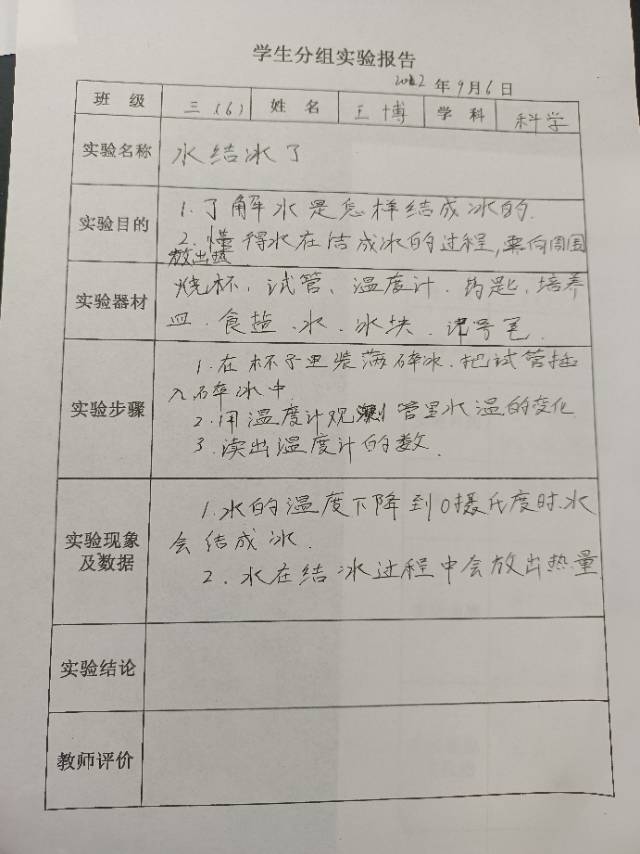 学生分组实验报告
2022年9月6日
班 级 三(6) 姓 名 王博 学 科 科学
实验名称 水结冰了
实验目的 1.了解水是怎样结成冰的.
2.懂得水在结成冰的过程,要向周围
放出热
实验器材 烧杯、试管、温度计、药匙、培养
皿、食盐、水、冰块、记号笔.
实验步骤 1.在杯子里装满碎冰.把试管插
入碎冰中.
2.用温度计观测管里水温的变化
3.读出温度计的数.
实验现象及数据 1.水的温度下降到0摄氏度时.水
会结成冰.
2.水在结冰过程中会放出热量
实验结论
教师评价